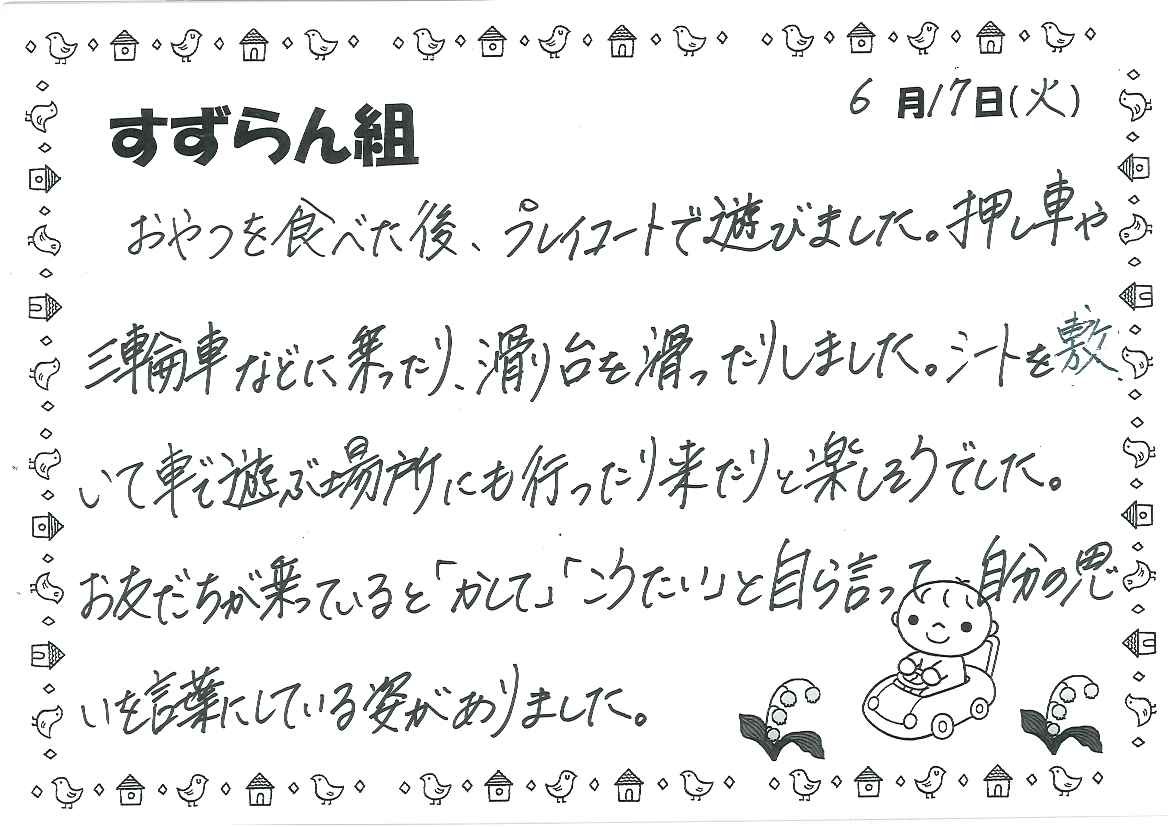 6月17日(火)
すずらん組
おやつを食べた後、プレイコートで遊びました。押し車や
三輪車などに乗ったり、滑り台を滑ったりしました。シートを敷
いて車で遊ぶ場所にも行ったり来たりと楽しそうでした。
お友だちが乗っていると「かして」「こうたい」と自ら言って、自分の思
いを言葉にしている姿がありました。